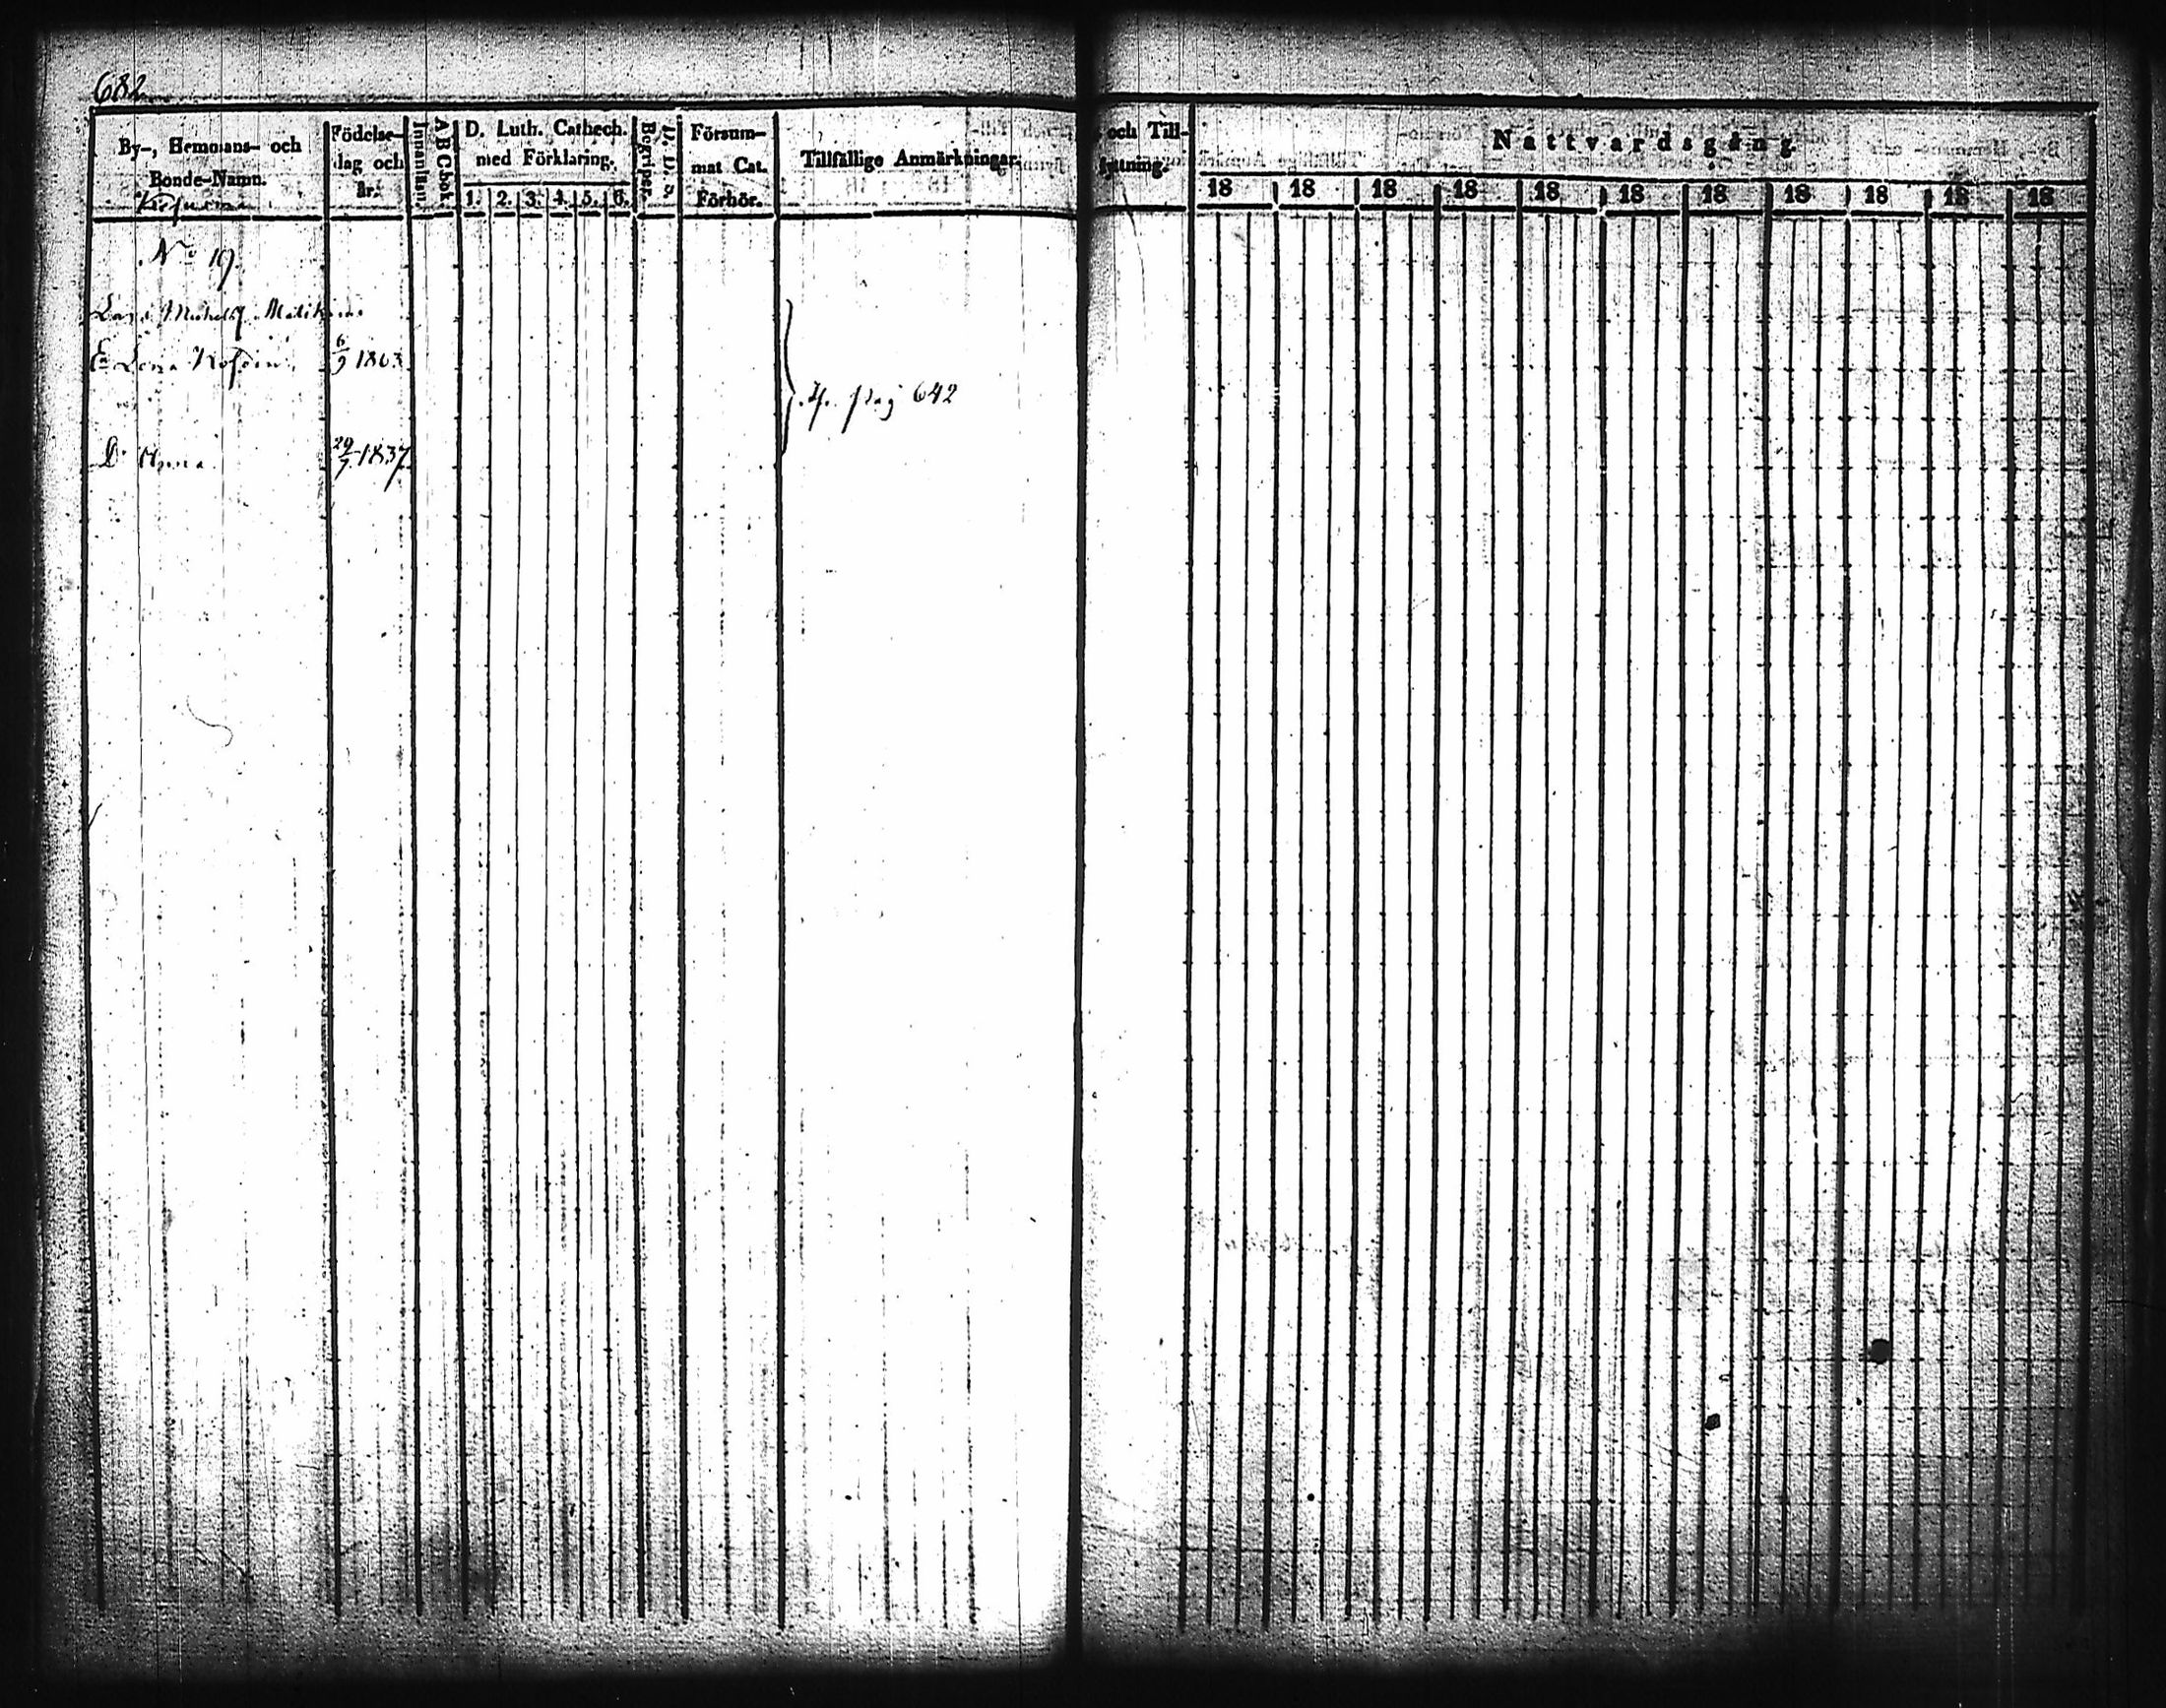 682
By-, Hemmans- och
Bonde-Namn.
Födelse-
dag och
år.
Innanläsn.
ABCbok.
D. Luth. Cathech.
med Förklaring.
1. 2. 3. 4. 5. 6.
Begriper.
Försum-
mat Cat.
Förhör.
Tillfällige Anmärkningar.
och Till-
flyttning.
Nattvardsgång
18 18 18 18 18 18 18 18 18 18 18
No 19
Lars Michelss
Ea Lena 6/9 1803
pag 642
Dr Anna 29/7 1837